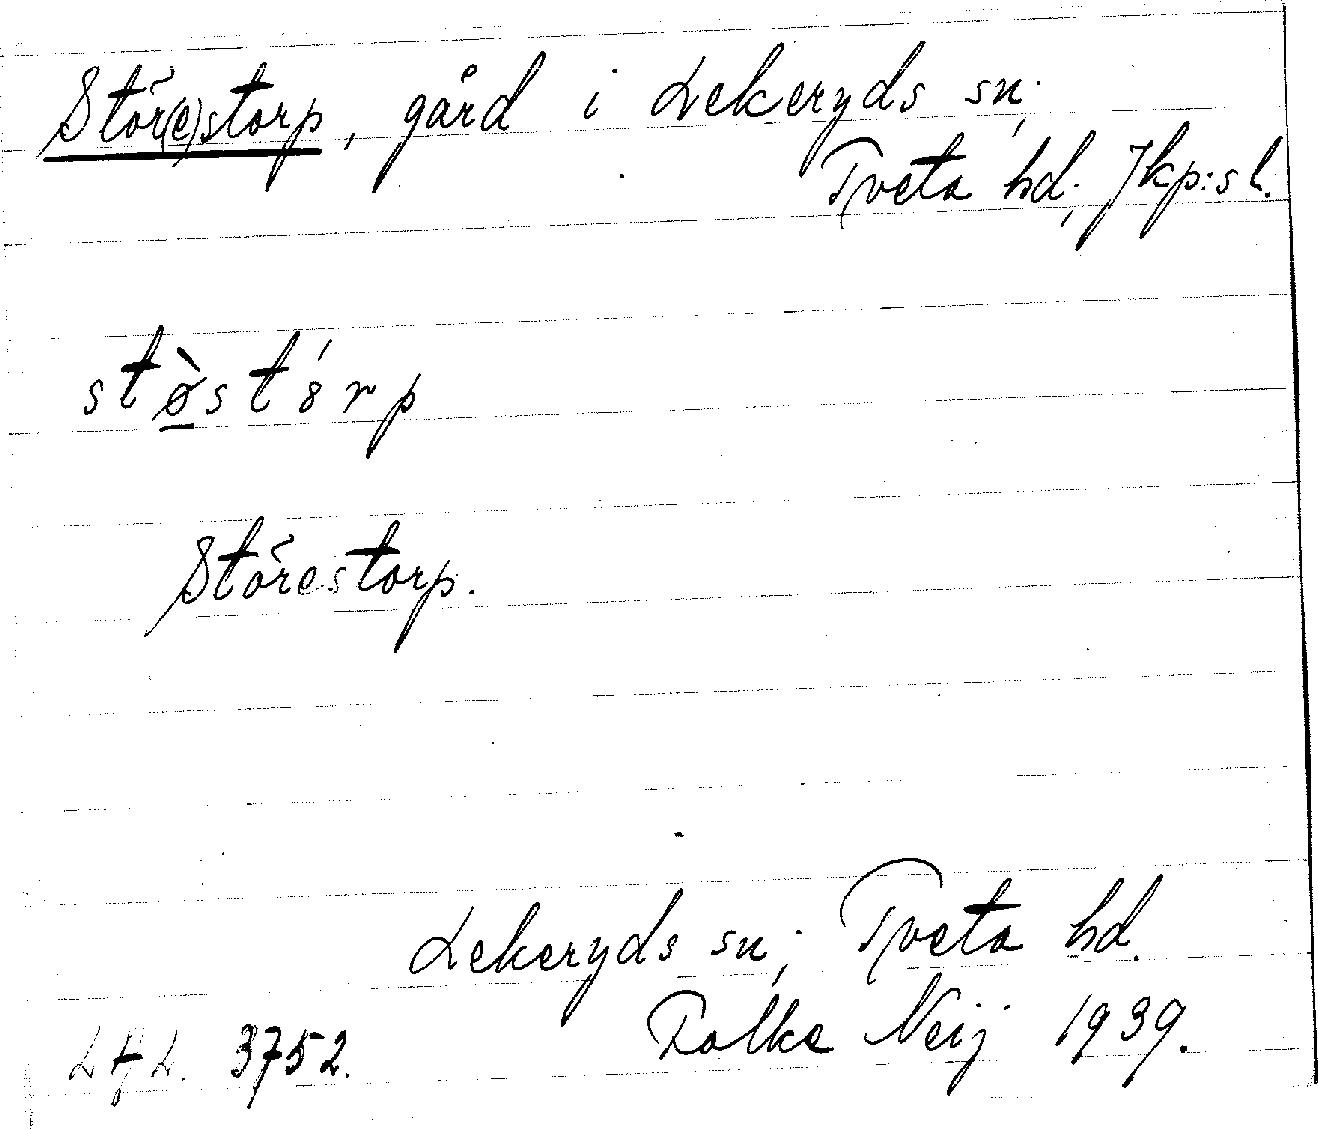 Stör(e)storp, gård i Lekeryds sn;
Tveta hd; Jkp:s l.
stø̀stórp
Störestorp.
Lekeryds sn; Tveta hd.
Folke Neij 1939.
3752.